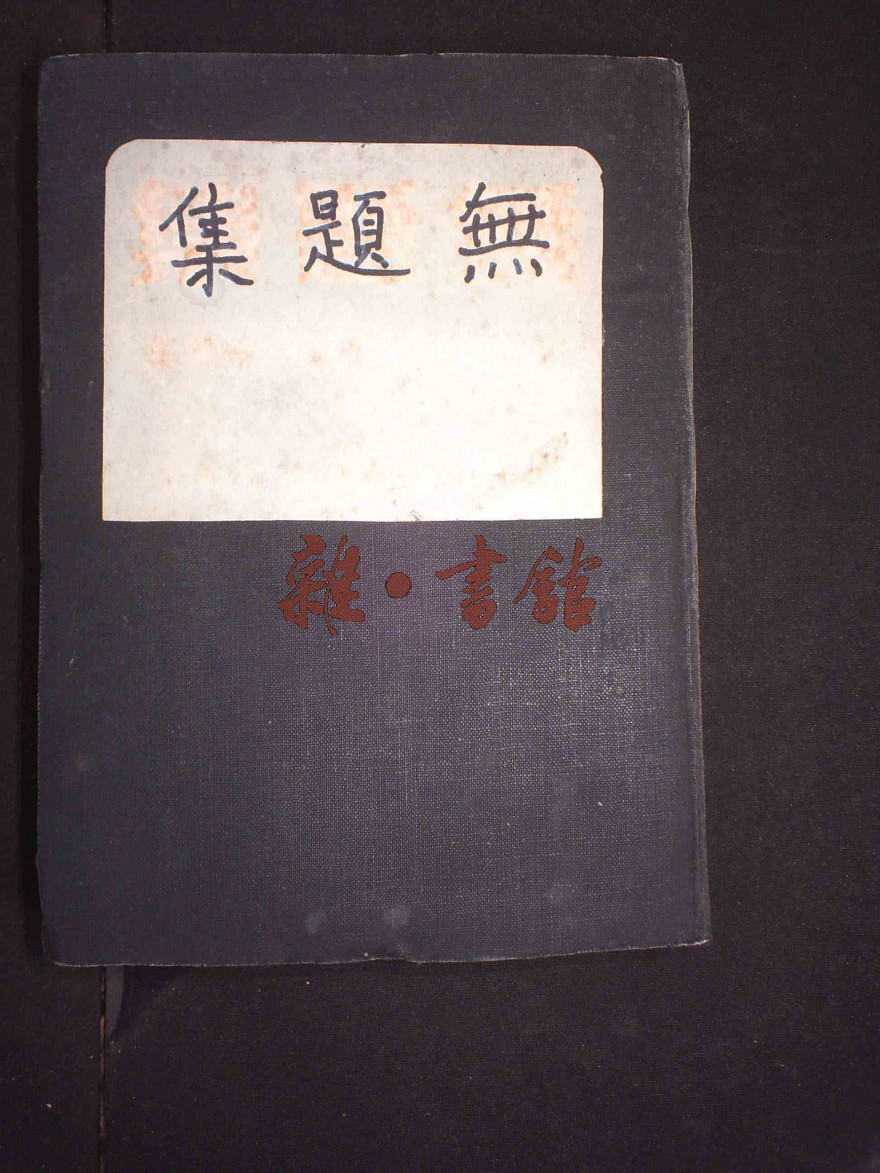 無題集
雜·書館